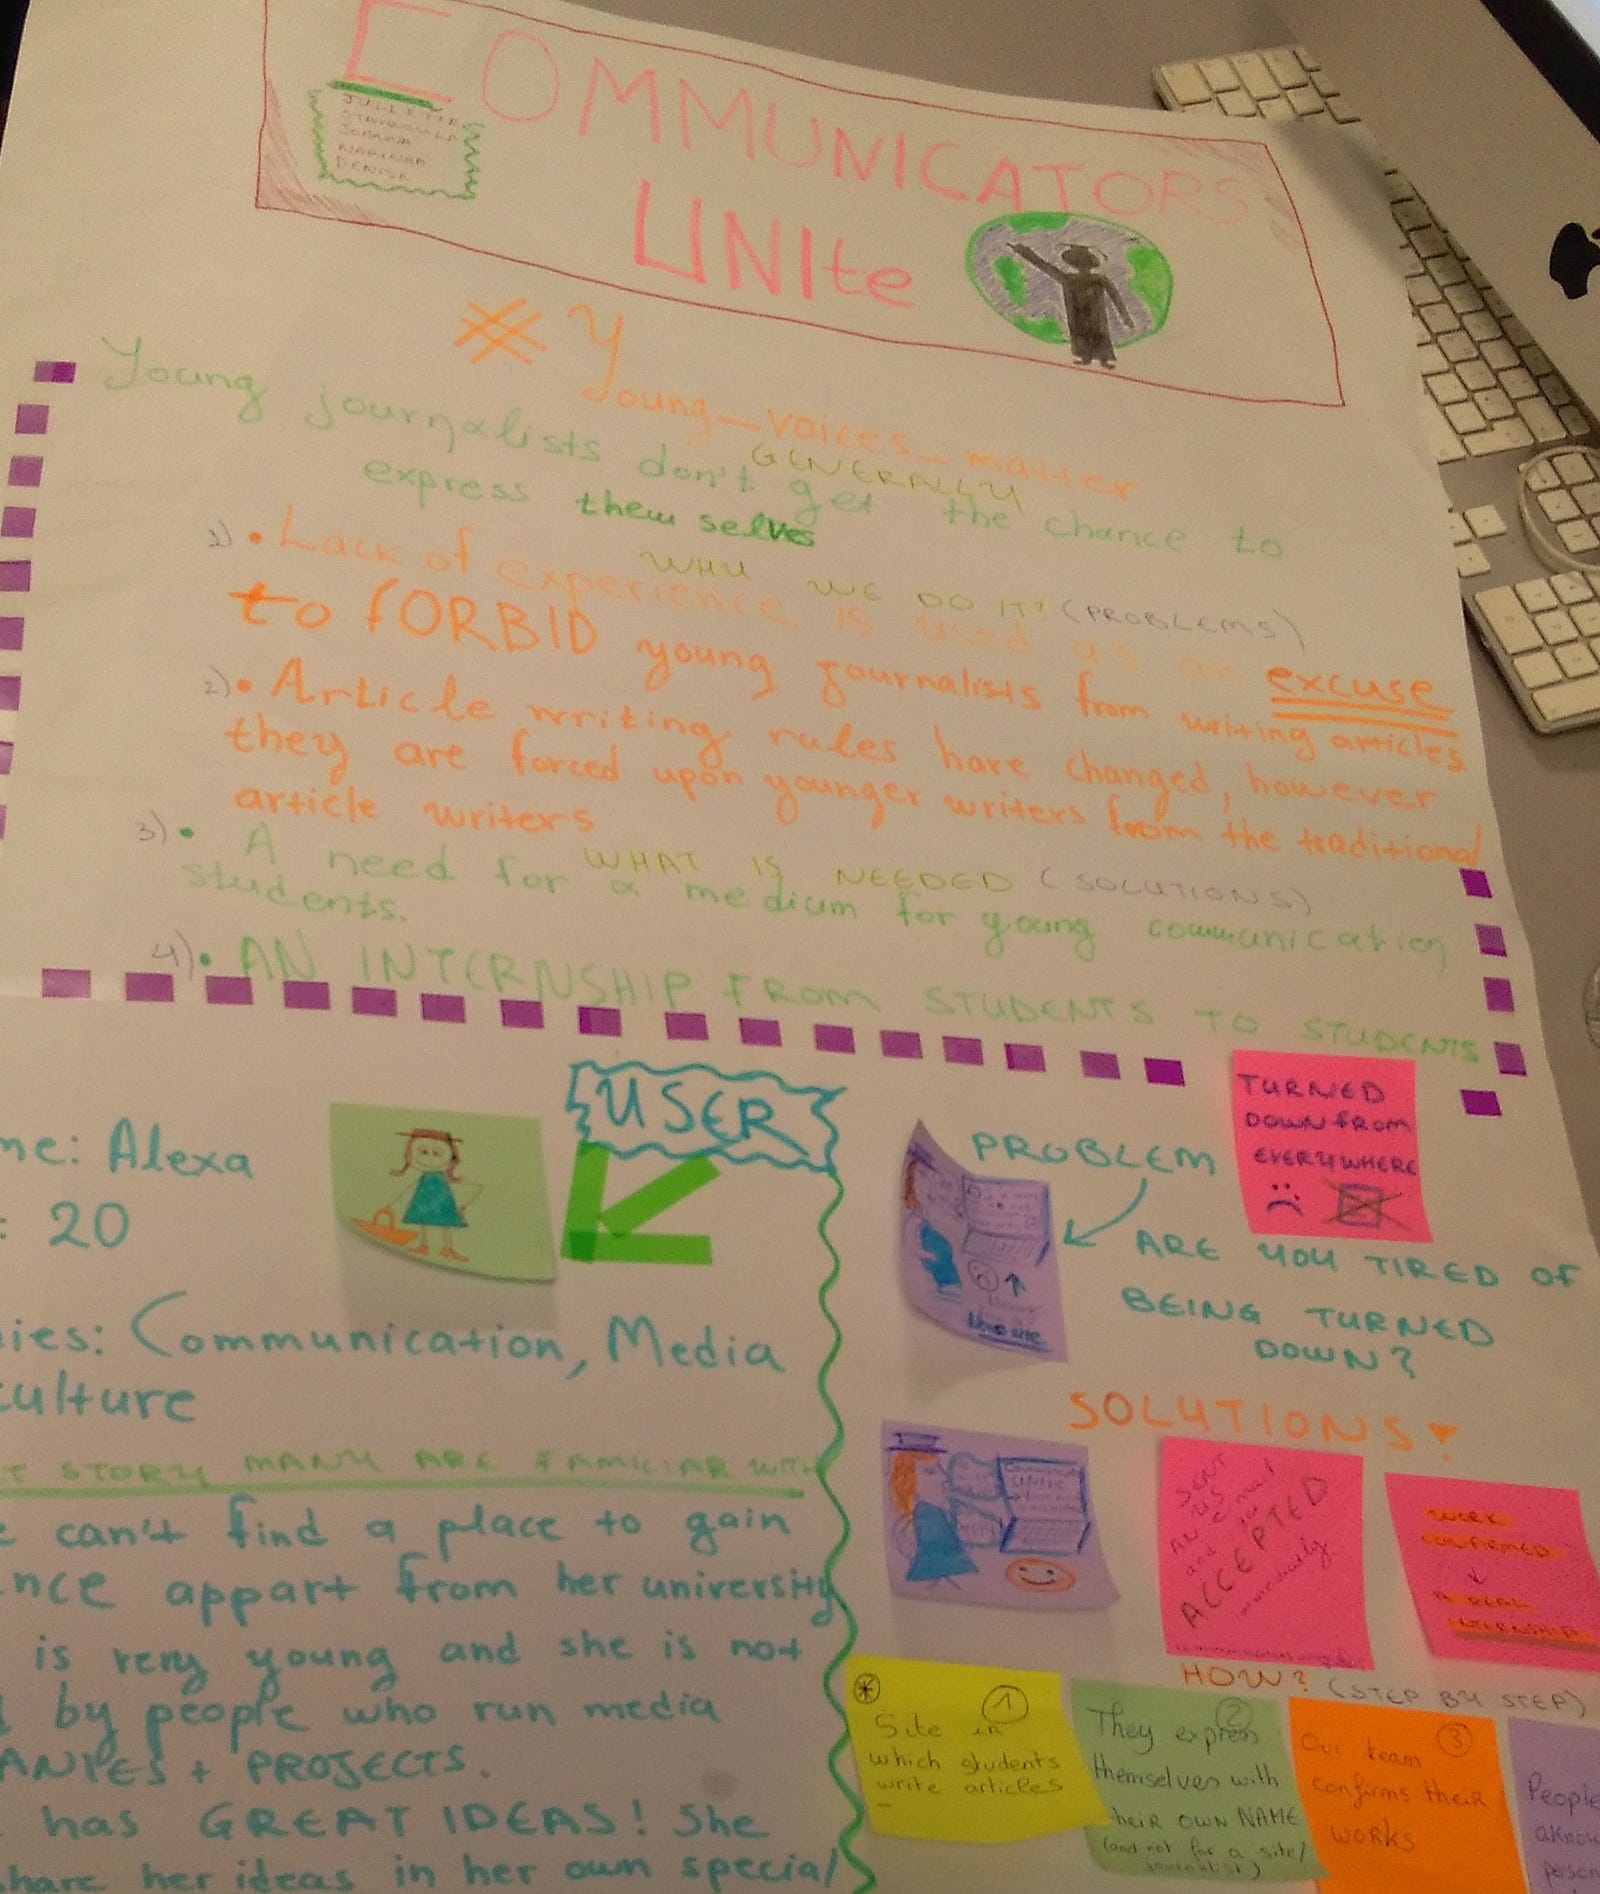 COMMUNICATORS
UNIte
JULIETTE
STAVROULA
JOANNA
NARINAA
DENISE
# Young_voices_matter
GENERALLY
Young journalists don't get the chance to
express them selves
WHY WE DO IT? (PROBLEMS)
1) • Lack of experience is used as an excuse
to fORBID young journalists from writing articles
2) • Article writing rules have changed, however
they are forced upon younger writers from the traditional
article writers
WHAT IS NEEDED (SOLUTIONS)
3) • A need for a medium for young communication
students.
4) • AN INTERNSHIP FROM STUDENTS TO STUDENTS
USER
me: Alexa
: 20
ies: Communication, Media
culture
T STORY MANY ARE FAMILIAR WITH
e can't find a place to gain
nce appart from her university
is very young and she is not
by people who run media
ANIES + PROJECTS.
has GREAT IDEAS! She
hare her ideas in her own special
PROBLEM
TURNED
DOWN from
EVERYWHERE
ARE YOU TIRED OF
BEING TURNED
DOWN?
SOLUTIONS!
UNITE
SENT
US
AN email
and
ACCEPTED
immediatly
WORK
CONFIRMED
A REAL
INTERNSHIP
HOW? (STEP BY STEP)
1
Site in
which students
write articles
2
They express
themselves with
their OWN NAME
(and not for a site/
journalist)
3
Our team
confirms their
works
People
aknow
person